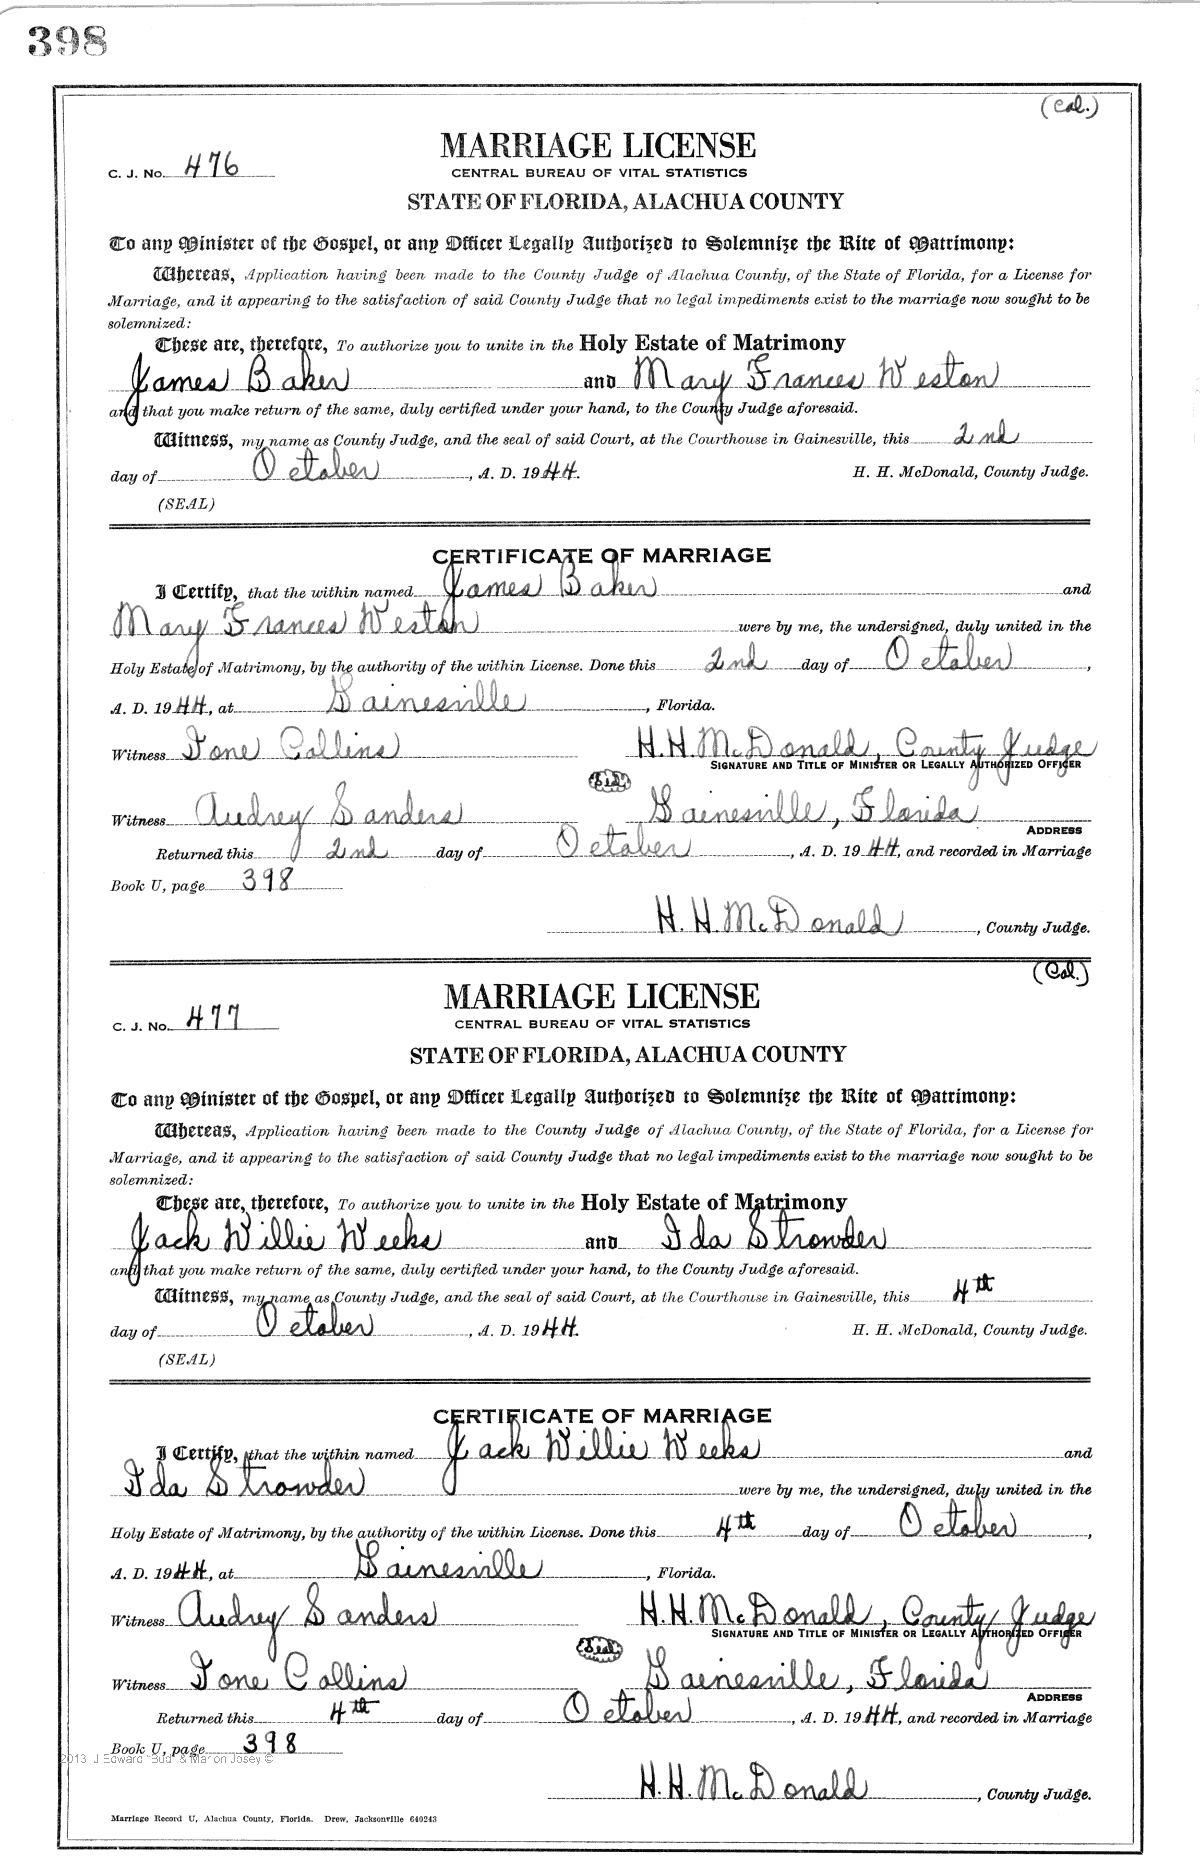 398
(Col.)
MARRIAGE LICENSE
C. J. No. 476
CENTRAL BUREAU OF VITAL STATISTICS
STATE OF FLORIDA, ALACHUA COUNTY
To any Minister of the Gospel, or any Officer Legally Authorized to Solemnize the Rite of Matrimony:
Whereas, Application having been made to the County Judge of Alachua County, of the State of Florida, for a License for
Marriage, and it appearing to the satisfaction of said County Judge that no legal impediments exist to the marriage now sought to be
solemnized:
These are, therefore, To authorize you to unite in the Holy Estate of Matrimony
James Baker and Mary Frances Weston
and that you make return of the same, duly certified under your hand, to the County Judge aforesaid.
Witness, my name as County Judge, and the seal of said Court, at the Courthouse in Gainesville, this 2nd
day of October, A. D. 1944. H. H. McDonald, County Judge.
(SEAL)
CERTIFICATE OF MARRIAGE
I Certify, that the within named James Baker and
Mary Frances Weston were by me, the undersigned, duly united in the
Holy Estate of Matrimony, by the authority of the within License. Done this 2nd day of October,
A. D. 1944, at Gainesville, Florida.
Witness Ione Collins H. H. McDonald, County Judge
SIGNATURE AND TITLE OF MINISTER OR LEGALLY AUTHORIZED OFFICER
Seal
Witness Audrey Sanders Gainesville, Florida
ADDRESS
Returned this 2nd day of October, A. D. 1944, and recorded in Marriage
Book U, page 398
H. H. McDonald, County Judge.
(Col.)
MARRIAGE LICENSE
C. J. No. 477
CENTRAL BUREAU OF VITAL STATISTICS
STATE OF FLORIDA, ALACHUA COUNTY
To any Minister of the Gospel, or any Officer Legally Authorized to Solemnize the Rite of Matrimony:
Whereas, Application having been made to the County Judge of Alachua County, of the State of Florida, for a License for
Marriage, and it appearing to the satisfaction of said County Judge that no legal impediments exist to the marriage now sought to be
solemnized:
These are, therefore, To authorize you to unite in the Holy Estate of Matrimony
Jack Willie Weeks and Ida Strowder
and that you make return of the same, duly certified under your hand, to the County Judge aforesaid.
Witness, my name as County Judge, and the seal of said Court, at the Courthouse in Gainesville, this 4th
day of October, A. D. 1944. H. H. McDonald, County Judge.
(SEAL)
CERTIFICATE OF MARRIAGE
I Certify, that the within named Jack Willie Weeks and
Ida Strowder were by me, the undersigned, duly united in the
Holy Estate of Matrimony, by the authority of the within License. Done this 4th day of October,
A. D. 1944, at Gainesville, Florida.
Witness Audrey Sanders H. H. McDonald, County Judge
SIGNATURE AND TITLE OF MINISTER OR LEGALLY AUTHORIZED OFFICER
Seal
Witness Ione Collins Gainesville, Florida
ADDRESS
Returned this 4th day of October, A. D. 1944, and recorded in Marriage
Book U, page 398
2013 J Edward "Bud" & Marion Josey ©
H. H. McDonald, County Judge.
Marriage Record U, Alachua County, Florida. Drew, Jacksonville 640243